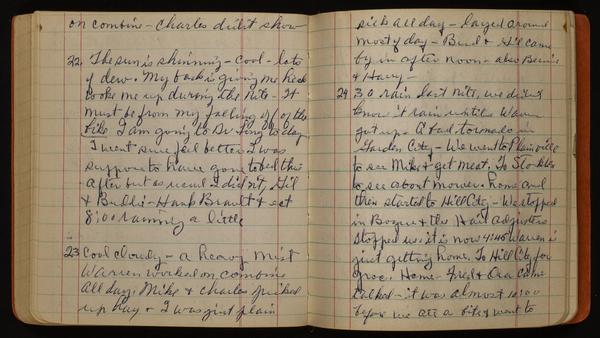 on combine - Charles didn't show
22. The sun is shinning - Cool - lots
of dew. My back is giving me heck
woke me up during the nite - It
must be from my falling off of the
bike I am going to Dr Ling to day
I went sure feel better I was
suppose to have gone to bed this
after but as usual I didn't, Gil
& Budd -
8:00 raining a little
23 Cool cloudy - a heavy mist
Warren worked on combine
all day. Mike & Charles picked
up hay & I was just plain
sick all day - layed around
most of day - Bud & Gil came
by in after noon - also
& Harry -
24 30 rain last nite, we didn't
know it rain until Warren
got up. A bad tornado in
Garden City - We went to Plainville
to see Mike & get meat. To Stockton
to see about mower. home and
then started to Hill City - We stopped
in Bogue & the Hail Adjusters
stopped us. it is now 4:45 Warren is
just getting home. To Hill City for
groc. Home - Fred & Ora came
talked - it was almost 10:00
before we ate a bite & went to